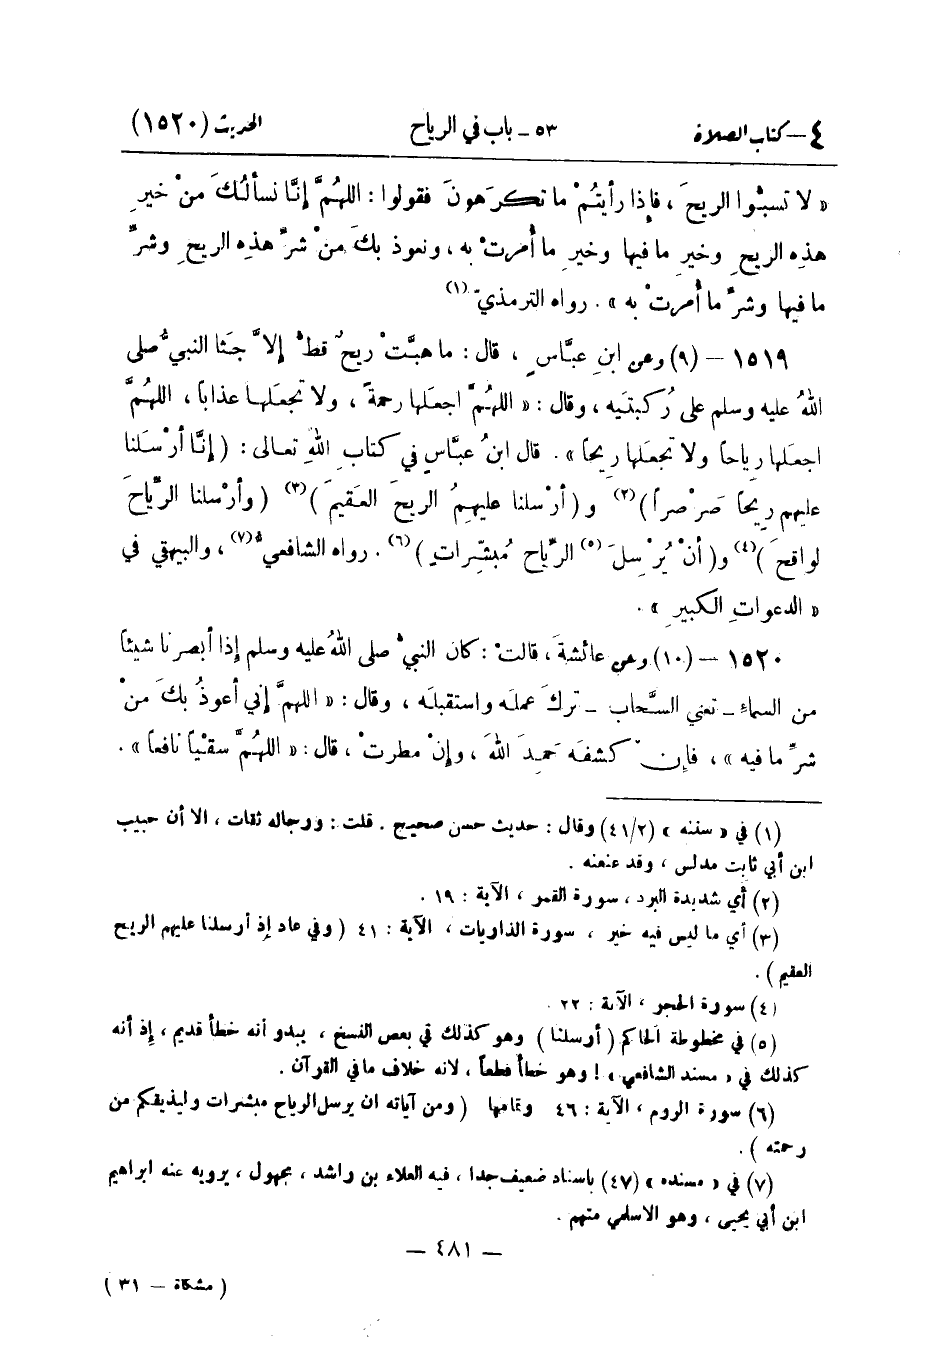 ٤ – كتاب الصلاة ٥٣ ـ باب في الرياح الحديث (١٥٢٠)
« لا تسبُّوا الريحَ ، فإذا رأيتُمْ ما تكرَهونَ فقولوا : اللهُمَّ إنَّا نسألُكَ منْ خيرِ
هذِه الريحِ وخيرِ ما فيها وخيرِ ما أُمرتْ به ، ونعوذ بكَ منْ شرِّ هذِه الريحِ وشرِّ
ما فيها وشرِّ ما أُمرتْ به » . رواه الترمذيّ (١)
١٥١٩ – (٩) وعن ابنِ عبَّاسٍ ، قال : ما هبَّتْ ريحٌ قطُّ إلاَّ جَثا النبيُّ صلى
اللهُ عليه وسلم على رُكبتَيه ، وقال : « اللهُمَّ اجعَلها رحمةً ، ولا تجعَلها عذاباً ، اللهُمَّ
اجعَلها رِياحاً ولا تجعَلها رِيحاً » . قال ابنُ عبَّاسٍ في كتابِ اللهِ تعالى : ( إنَّا أرْسَلنا
عليهم رِيحاً صَرْصَراً ) (٢) و ( أرْسلنا عليهِمُ الريحَ العَقيمَ ) (٣) ( وأرْسلنا الرِّياحَ
لواقحَ ) (٤) و( أنْ يُرْسِلَ (٥) الرِّياحَ مُبشِّراتٍ ) (٦) . رواه الشافعيُّ (٧) ، والبيهقي في
« الدعواتِ الكبيرِ » .
١٥٢٠ – (١٠) وعن عائشةَ ، قالتْ : كان النبيُّ صلى اللهُ عليه وسلم إذا أبصرنا شيئاً
من السماءِ ـ تعني السَّحابَ ـ تركَ عملَه واستقبلَه ، وقال : « اللهمَّ إني أعوذُ بكَ منْ
شرِّ ما فيه » ، فإِنْ كشفَه حمِدَ اللهَ ، وإنْ مطرتْ ، قال : « اللهُمَّ سقْياً نافعاً » .
(١) في « سننه » (٤١/٢) وقال : حديث حسن صحيح . قلت : ورجاله ثقات ، الا أن حبيب
ابن أبي ثابت مدلس ، وقد عنعنه .
(٢) أي شديدة البرد ، سورة القمر ، الآية : ١٩ .
(٣) أي ما ليس فيه خير ، سورة الذاريات ، الآية : ٤١ ( وفي عاد إذ أرسلنا عليهم الريح
العقيم ) .
(٤) سورة الحجر ، الآية : ٢٢ .
(٥) في مخطوطة الحاكم ( أرسلنا ) وهو كذلك في بعض النسخ ، يبدو أنه خطأ قديم ، إذ أنه
كذلك في « مسند الشافعي » ! وهو خطأ قطعاً ، لانه خلاف ما في القرآن .
(٦) سورة الروم ، الآية : ٤٦ وتمامها ( ومن آياته ان يرسل الرياح مبشرات وليذيقكم من
رحمته ) .
(٧) في « مسنده » (٤٧) باسناد ضعيف جدا ، فيه العلاء بن راشد ، مجهول ، يرويه عنه ابراهيم
ابن أبي يحيى ، وهو الاسلمي متهم .
— ٤٨١ —
( مشكاة – ٣١ )